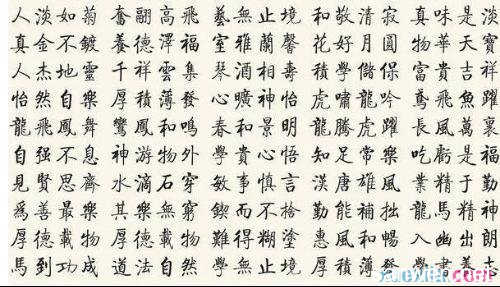 人淡如菊 奮翩高飛 藝無止境 和敬清寂 真味是淡
真金不鍍 養德澤福 室雅蘭馨 花好月圓 物華天寶
人杰地靈 千祥雲集 琴酒相壽 積學儲保 富貴吉祥
怡然自樂 厚積薄發 心曠神怡 虎嘯龍吟 鳶飛魚躍
龍飛鳳舞 鸞鳳和鳴 春和景明 龍騰虎躍 長風萬裏
自强不息 神游物外 學貴心悟 知足常樂 吃虧是福
見賢思齊 水滴石穿 敏事慎言 漢唐雄風 業精于勤
爲善最樂 其樂無窮 鍥而不捨 勤能補拙 龍馬精神
厚德載物 厚德載物 難得糊塗 惠風和暢 入幽出朗
馬到功成 道法自然 學無止境 厚積薄發 學書養